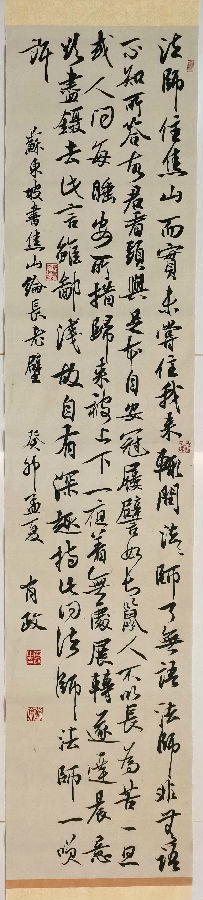 法師住焦山而實未嘗住我來輒問法〻師了無語法師非無語
不知所答故君看頭與足本自安冠屨譬如長鬣人不以長為苦一旦
或人問每睡安所措歸來被上下一夜着無處展轉遂達晨意
欲盡鑷去此言雖鄙淺故自有深趣持此問法師法師一笑
許
蘇東坡書焦山綸長老壁 癸卯孟夏 有政